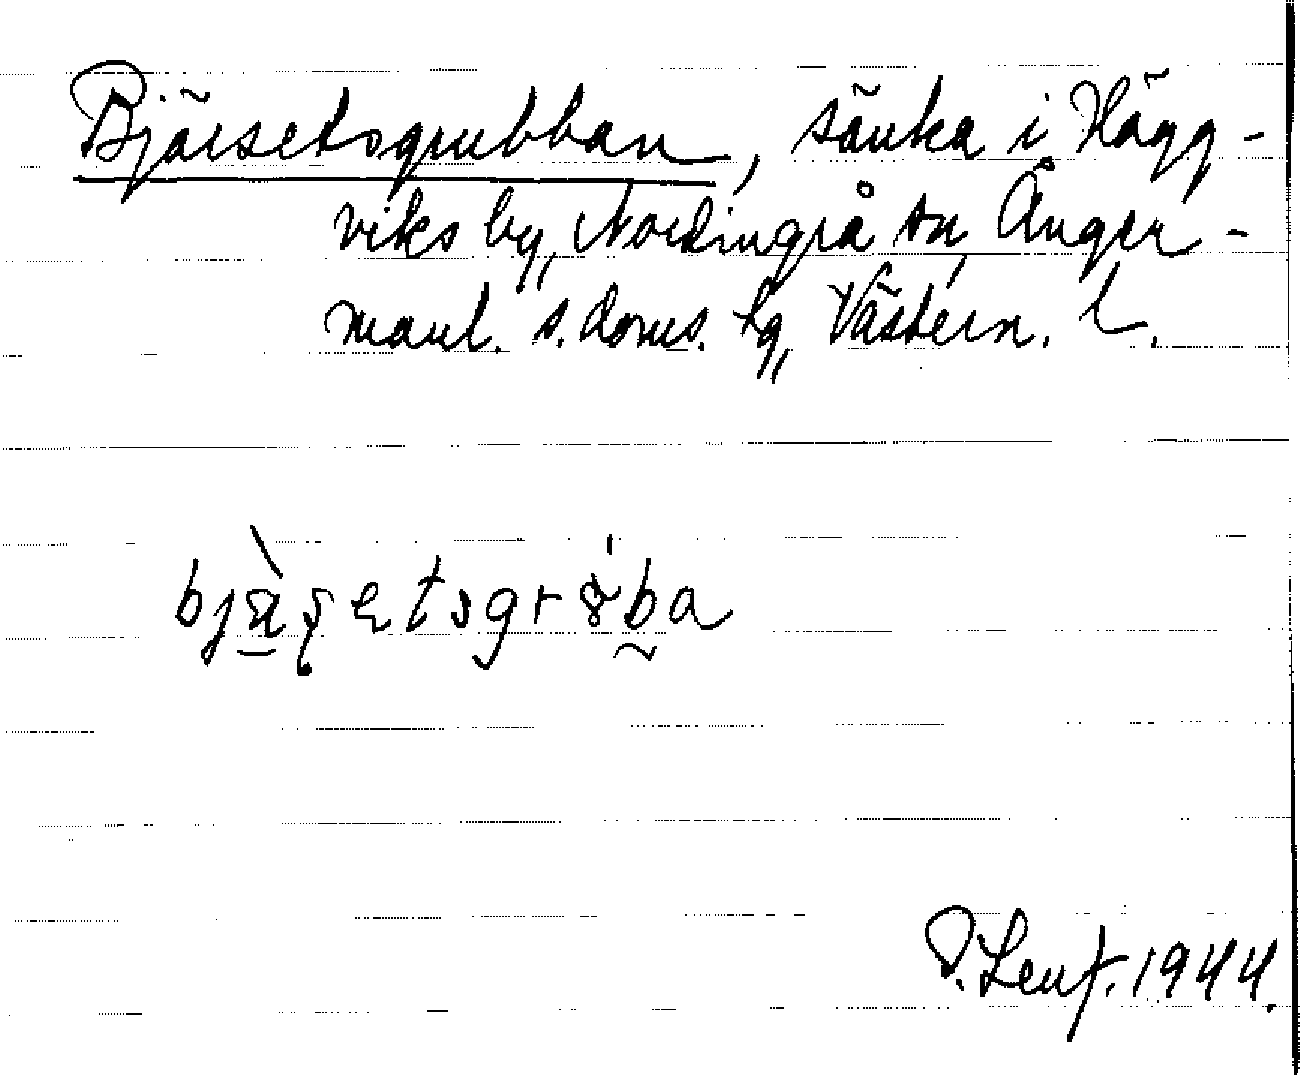 Bjärsetsgrubban, sänka i Hägg-
viks by, Nordingrå sn, Ånger-
manl. s. doms. hd, Västern. l.
bjäʂetsgrɤba
1944.